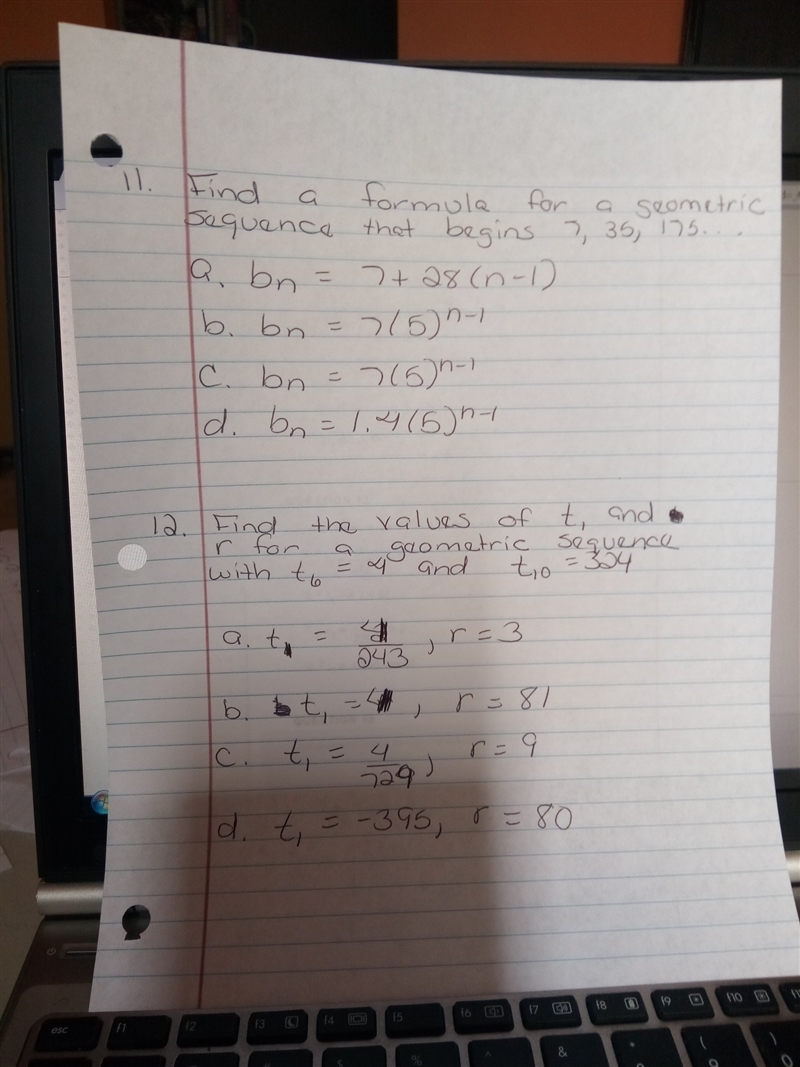 11. Find a formula for a geometric
sequence that begins 7, 35, 175....
a. bn = 7+28(n-1)
b. bn = 7(5)^n-1
c. bn = 7(5)^n-1
d. bn = 1.4(5)^n-1
12. Find the values of t1 and
r for a geometric sequence
with t6 = 4 and t10 = 324
a. t1 = 4/243, r = 3
b. t1 = 4, r = 81
c. t1 = 4/729, r = 9
d. t1 = -395, r = 80
esc f1 f2 f3 f4 f5 f6 f7 f8 f9 f10
% & (